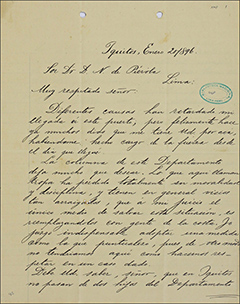 Iquitos, Enero 20/896.
Sor. Dr. D. N. de Piérola
Lima.
Muy respetado señor:
Diferentes causas han retardado mi
llegada á este puerto, pero felizmente hace
ya muchos dias que me tiene Ud. por acá,
habiéndome hecho cargo de la fuerza desde
el dia que llegué.
La columna de este Departamento
deja mucho que desear. Lo que aquí llaman
tropa ha perdido totalmente su moralidad
y disciplina, y tienen en general vicios
tan arraigados, que á mi juicio el
único modo de salvar esta situación, es
reemplazándolos con gente de la costa. Y
juzgo indispensable adoptar esta medida
como la que puntualizo, pues de otro modo
no tendríamos aquí como hacernos res-
petar en un caso dado.
Debe Ud. saber, señor, que en Iquitos
no pasan de dos hijos del Departamento